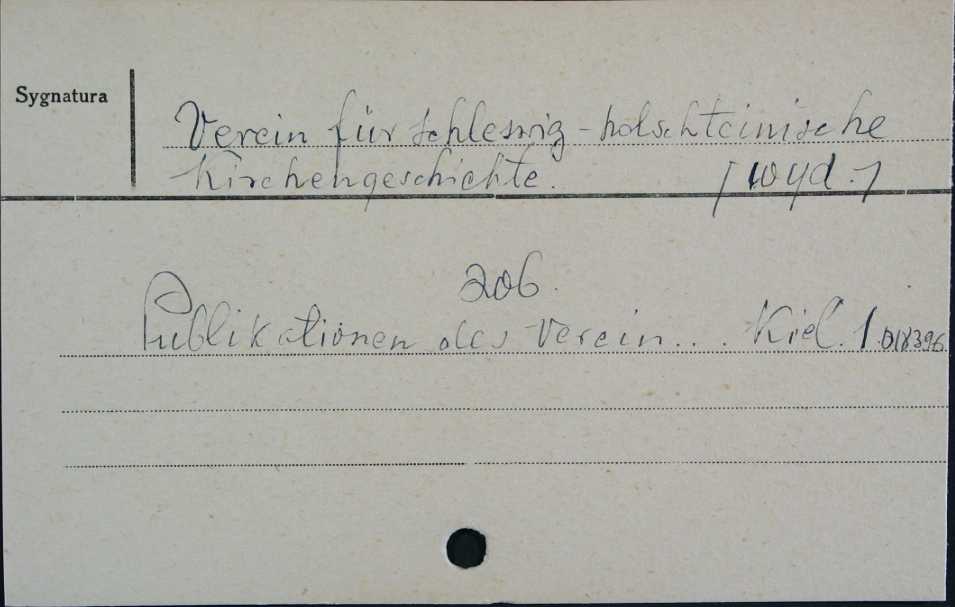 Sygnatura
Verein für schleswig-holschteinische
Kirchengeschichte. /wyd./
206.
Publikationen des Verein... Kiel.